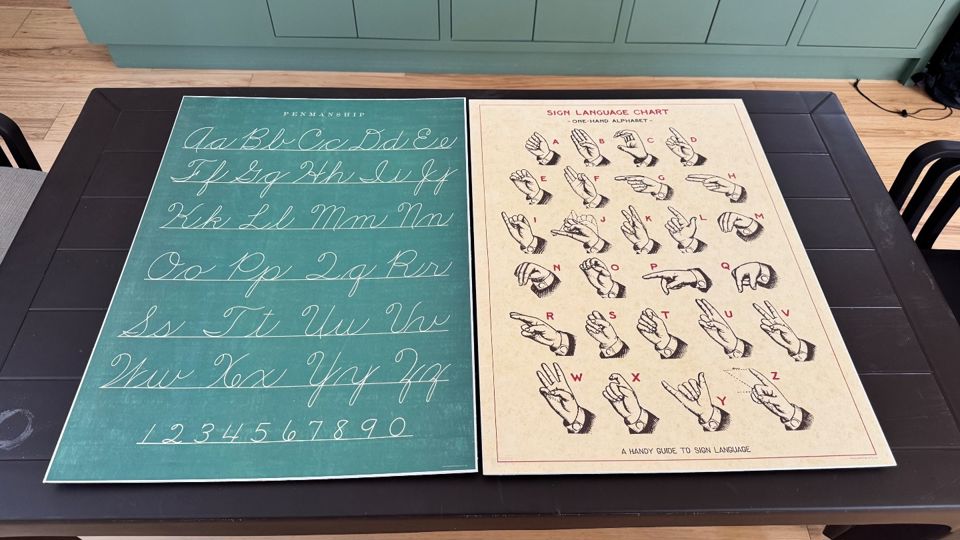 PENMANSHIP
Aa Bb Cc Dd Ee
Ff Gg Hh Ii Jj
Kk Ll Mm Nn
Oo Pp Qq Rr
Ss Tt Uu Vv
Ww Xx Yy Zz
1 2 3 4 5 6 7 8 9 0
SIGN LANGUAGE CHART
- ONE-HAND ALPHABET -
A B C D
E F G H
I J K L M
N O P Q
R S T U V
W X Y Z
A HANDY GUIDE TO SIGN LANGUAGE